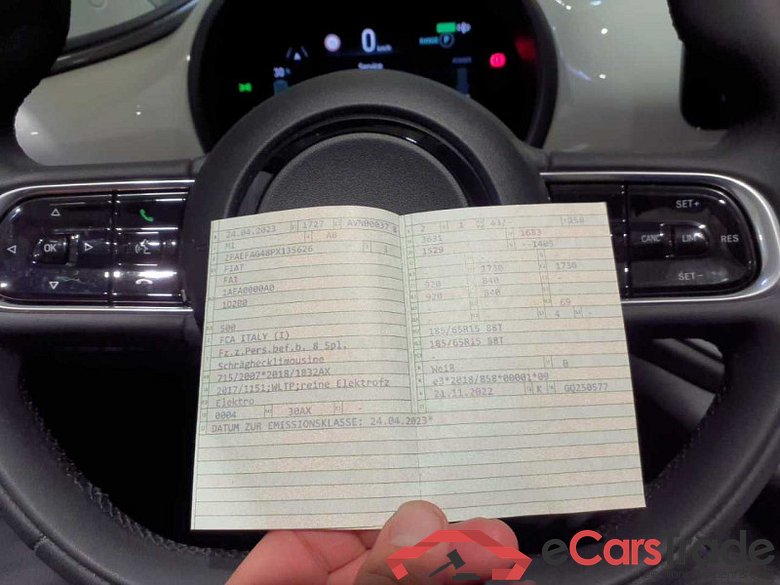 0 km/h
READY P
30
Service
OK
SET+
CANC LIM RES
SET-
24.04.2023 1727 AVN00037 8
M1 A0
ZFAEFAG48PX135626 1
FIAT
FA1
1AEA0000A0
102B0
500
FCA ITALY (I)
Fz.z.Pers.bef.b. 8 Spl.
Schräghecklimousine
715/2007*2018/1832AX
2017/1151;WLTP;reine Elektrofz
Elektro
0004 30AX
DATUM ZUR EMISSIONKLASSE: 24.04.2023*
2 1 43/ 150
3631 1683
1529 --1405
1730 1730
920 840
920 840
69
4
185/65R15 88T
185/65R15 88T
Weiß 0
e3*2018/858*00001*09
21.11.2022 K GQ250577
eCarstrade